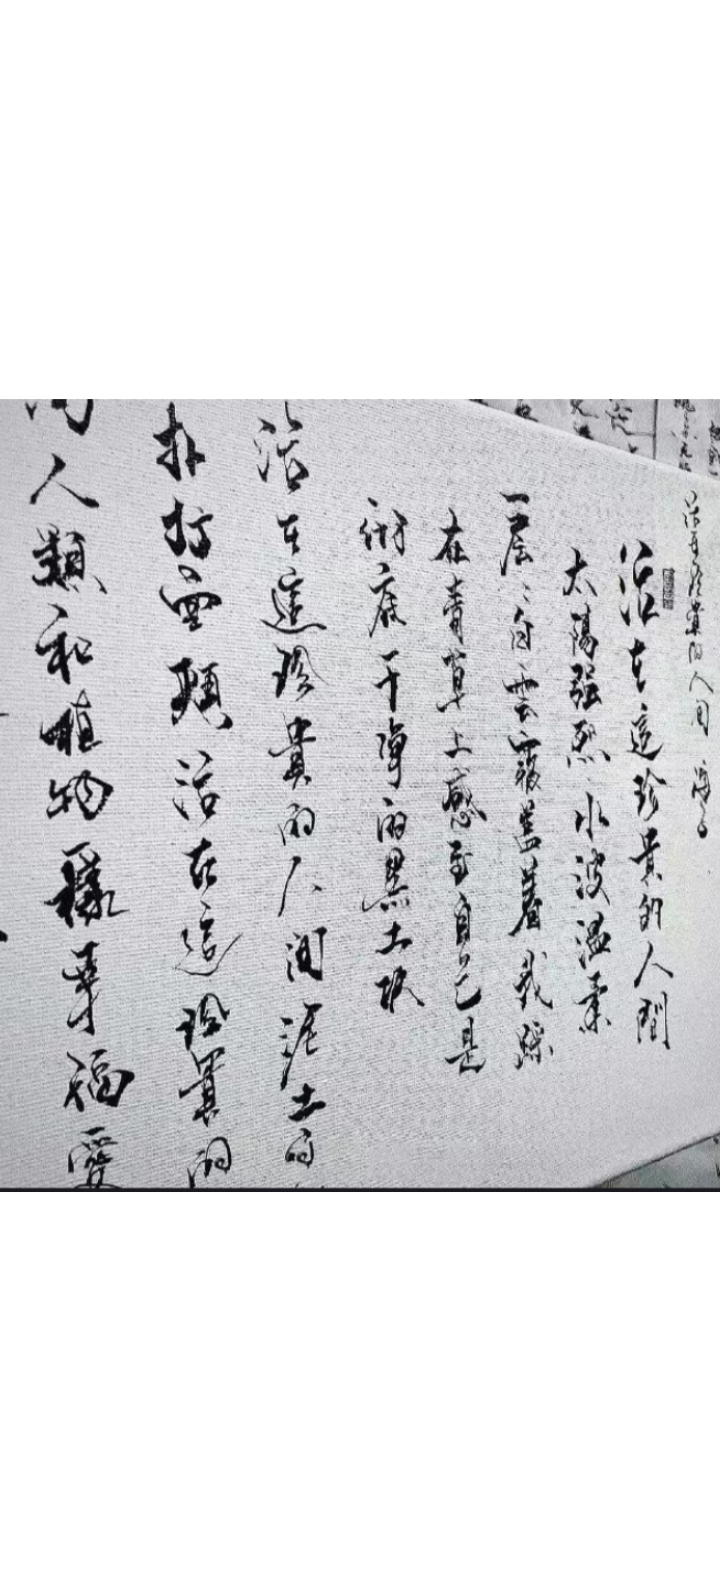 活在珍貴的人间 海子
活在這珍貴的人間
太陽强烈水波温柔
一層々白雲覆蓋着我踩
在青草上感到自己是
彻底干净的黑土块
活在這珍貴的人间泥土的
扑打面頰活在這珍貴的
人類和植物一樣幸福愛